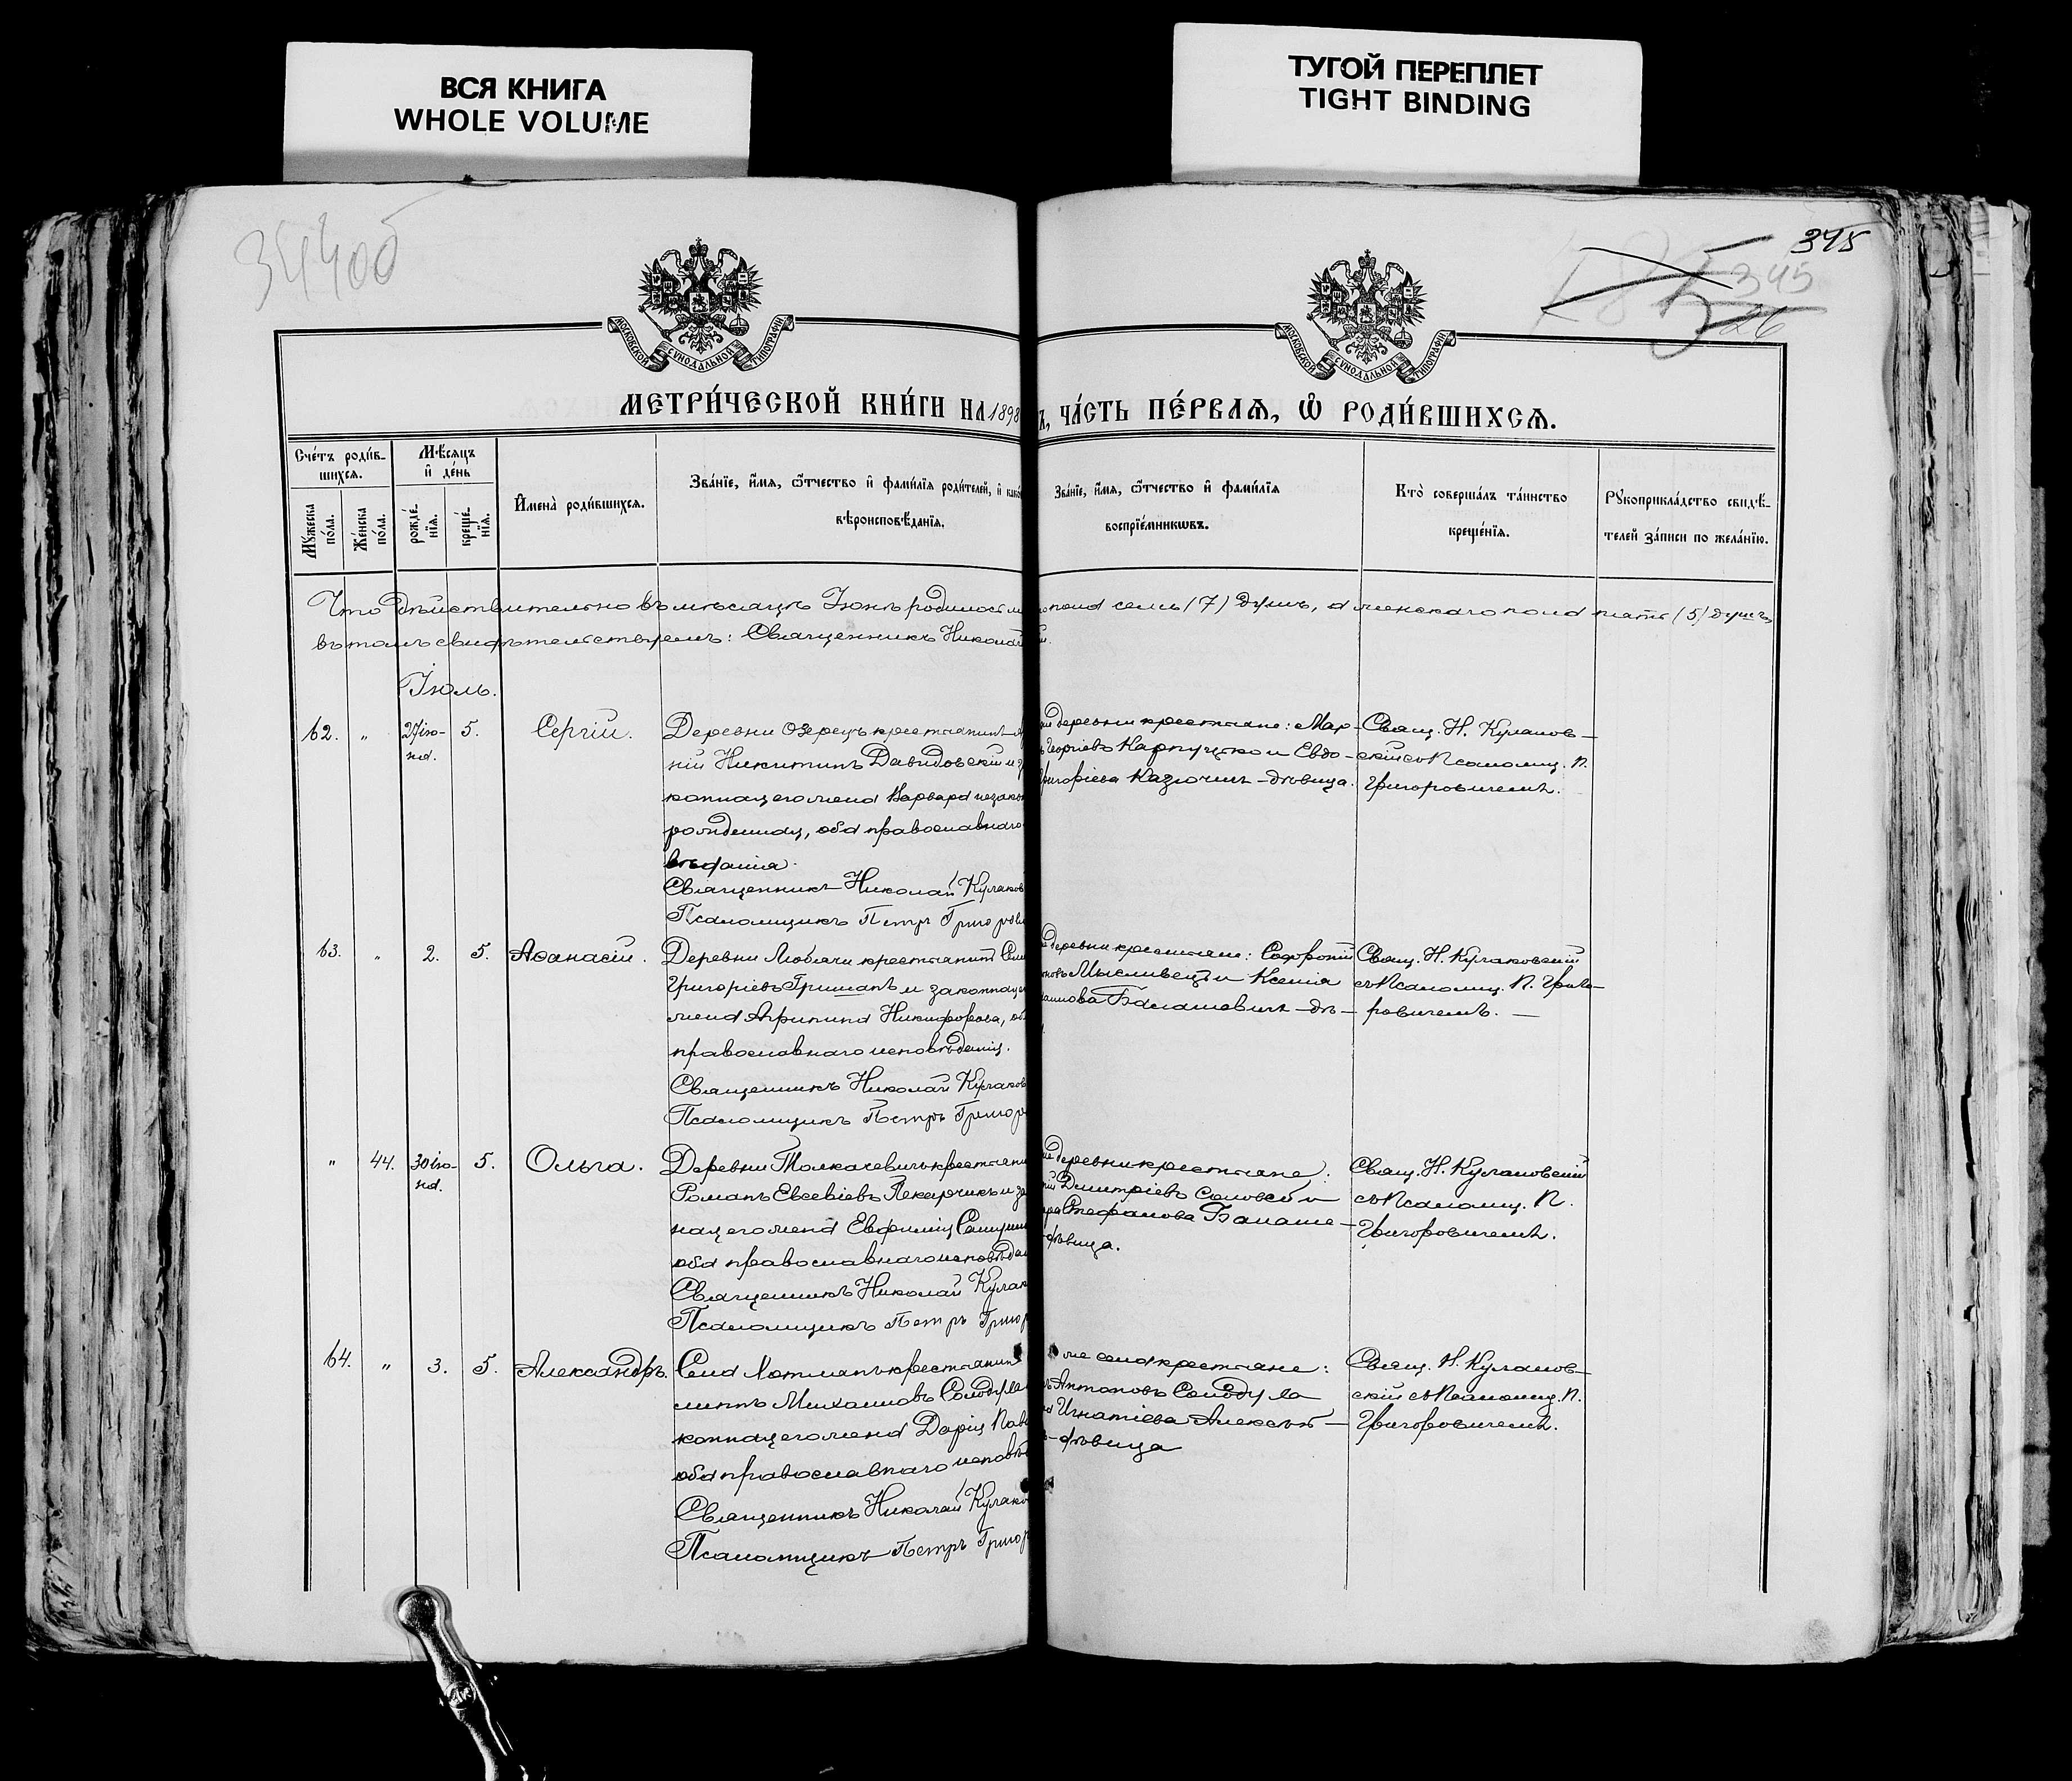 ВСЯ КНИГА
WHOLE VOLUME
ТУГОЙ ПЕРЕПЛЕТ
TIGHT BINDING
344об
345
345
26
МОСКОВСКОЙ СѴНОДАЛЬНОЙ ТИПОГРАФІИ
МОСКОВСКОЙ СѴНОДАЛЬНОЙ ТИПОГРАФІИ
МЕТРИ́ЧЕСКОЙ КНИ́ГИ НА 1898
Ъ, ЧА́СТЬ ПЕ́РВАѦ, Ѿ РОДИ́ВШИХСѦ.
Сче́тъ роди́в-
шихсѧ.
Мꙋ́жеска по́ла.
Же́нска по́ла.
Мѣ́сѧцъ
и҆ де́нь
рожде́-нїѧ.
креще́-нїѧ.
И҆мена̀ роди́вшихсѧ.
Зва́нїе, и҆́мѧ, ѻ҆́тчество и҆ фами́лїѧ роди́телей, и҆ како
вѣроисповѣ́данїѧ.
Зва́нїе, и҆́мѧ, ѻ҆́тчество и҆ фами́лїѧ
воспрїе́мникѡвъ.
Кто̀ соверша́лъ та́инство
креще́нїѧ.
Рꙋкоприкла́дство свидѣ́-
телей за́писи по жела́нїю.
Что дѣйствительно въ мѣсяцѣ Іюнѣ родилось м
пола семь (7) душъ, а женскаго пола пять (5) душъ,
въ томъ свидѣтельствуемъ: Священникъ Николай
Іюль.
62. „ 27 ію-ня. 5. Сергій.
Деревни Озерецъ крестьянинъ
ній Никитинъ Давидовскій и з
коннаяего жена Варвара незакон
рожденная, оба православнаго
вѣданія.
Священникъ Николай Кулаков
Псаломщикъ Петръ Григорови
деревни крестьяне: Мар-
Георгіевъ Карпуцко и Евдо-
Григоріева Казючиц-дѣвица.
Свящ. Н. Кулаков-
скій съ Псаломщ. П.
Григоровичемъ.
63. „ 2. 5. Аѳанасій.
Деревни Любачи крестьянинъ Сим
Григорьевъ Гришанъ и законнаяего
жена Агрипина Никифорова, об
православнаго исповѣданія.
Священникъ Николай Кулаков
Псаломщикъ Петръ Григоро
деревни крестьяне: Софроній
Мысливецъ и Ксенія
Балашевичъ-дѣ-
Свящ. Н. Кулаковскій
съ Псаломщ. П. Григо-
ровичемъ.
„ 44. 30 ію-ня. 5. Ольга.
Деревни Толкачевичъ крестьянин
Романъ Евсевіевъ Пекарчикъ и за
наяего жена Евфимія
оба православнаго исповѣдан
Священникъ Николай Кулак
Псаломщикъ Петръ Григор
деревни крестьяне:
Димитріевъ Соловей и
Стефанова Балаше-
-дѣвица.
Свящ. Н. Кулаковскій
съ Псаломщ. П.
Григоровичемъ.
64. „ 3. 5. Александръ.
Села Лотманъ крестьянин
Михаиловъ Солодуха
коннаяего жена Дарія Павл
оба православнаго исповѣ
Священникъ Николай Кулако
Псаломщикъ Петръ Григор
же села крестьяне:
Антоновъ Солодуха
Игнатіева
-дѣвица
Свящ. Н. Кулаков-
скій съ Псаломщ. П.
Григоровичемъ.